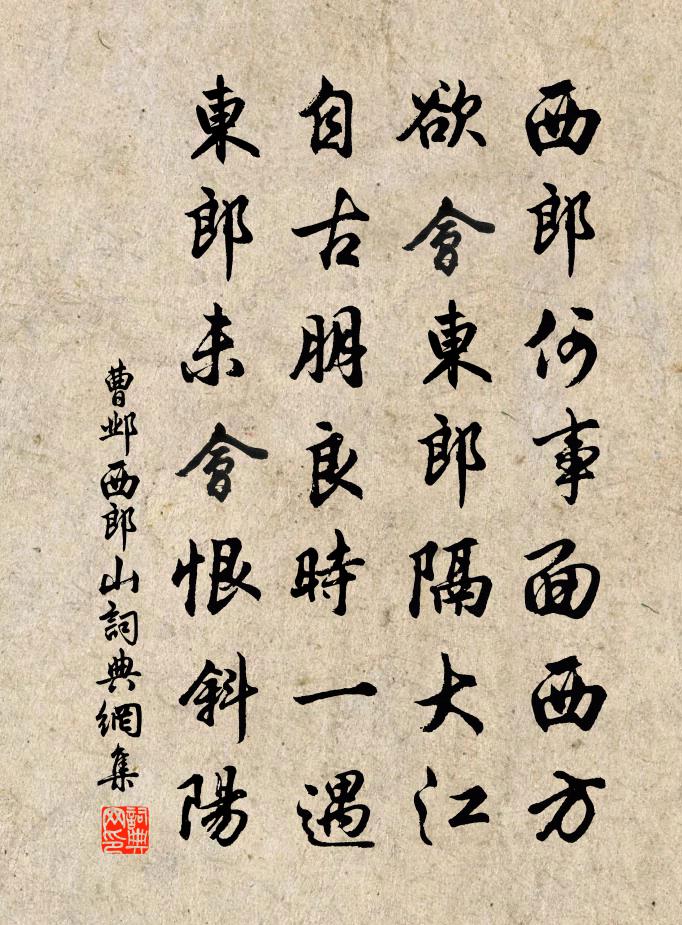 西郎何事面西方
欲會東郎隔大江
自古朋良時一遇
東郎未會恨斜陽
曹邺西郎山詞典網集
詞典网印